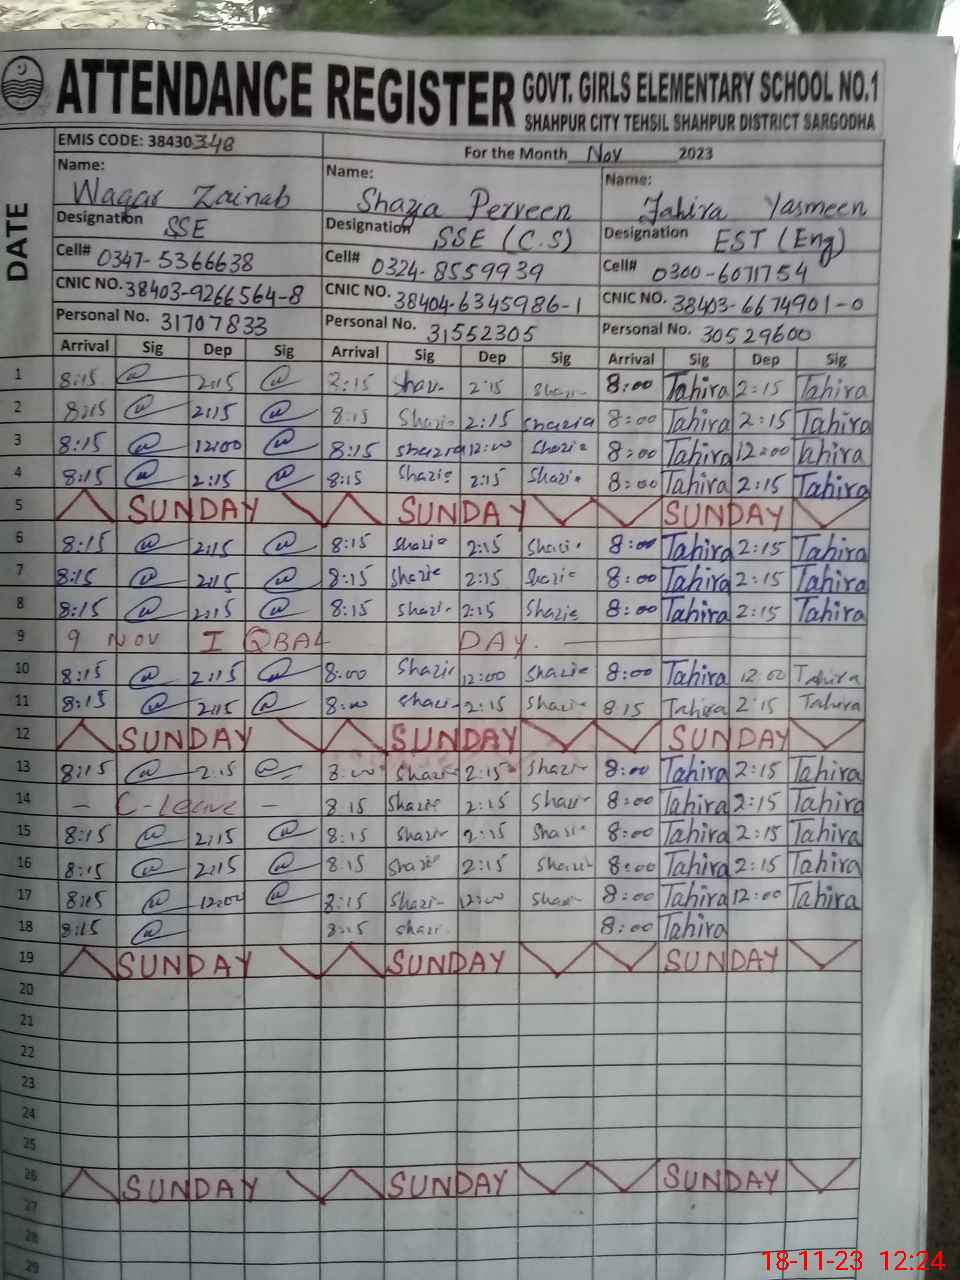 ATTENDANCE REGISTER GOVT. GIRLS ELEMENTARY SCHOOL NO.1
SHAHPUR CITY TEHSIL SHAHPUR DISTRICT SARGODHA
DATE
EMIS CODE: 38430348 For the Month Nov 2023
Name: Name: Name:
Waqar Zainab Shazia Perveen Tahira Yasmeen
Designation SSE Designation SSE (C.S) Designation EST (Eng)
Cell# 0347-5366638 Cell# 0324-8559939 Cell# 0300-6071754
CNIC NO. 38403-9266564-8 CNIC NO. 38404-6345986-1 CNIC NO. 38403-6674901-0
Personal No. 31707833 Personal No. 31552305 Personal No. 30529600
Arrival Sig Dep Sig Arrival Sig Dep Sig Arrival Sig Dep Sig
1 8:15 2:15 2:15 8:00 Tahira 2:15 Tahira
2 8:15 2:15 8:15 Shazia 2:15 Shazia 8:00 Tahira 2:15 Tahira
3 8:15 12:00 8:15 Shazia 12:00 Shazia 8:00 Tahira 12:00 Tahira
4 8:15 2:15 8:15 Shazia 2:15 Shazia 8:00 Tahira 2:15 Tahira
5 SUNDAY SUNDAY SUNDAY
6 8:15 2:15 8:15 Shazia 2:15 Shazia 8:00 Tahira 2:15 Tahira
7 8:15 2:15 8:15 Shazia 2:15 Shazia 8:00 Tahira 2:15 Tahira
8 8:15 2:15 8:15 Shazia 2:15 Shazia 8:00 Tahira 2:15 Tahira
9 9 NOV IQBAL DAY.
10 8:15 2:15 8:00 Shazia 12:00 Shazia 8:00 Tahira 12:00 Tahira
11 8:15 2:15 8:00 Shazia 2:15 Shazia 8:15 Tahira 2:15 Tahira
12 SUNDAY SUNDAY SUNDAY
13 8:15 2:15 8:00 Shazia 2:15 Shazia 8:00 Tahira 2:15 Tahira
14 - C-Leave - 8:15 Shazia 2:15 Shazia 8:00 Tahira 2:15 Tahira
15 8:15 2:15 8:15 Shazia 2:15 Shazia 8:00 Tahira 2:15 Tahira
16 8:15 2:15 8:15 Shazia 2:15 Shazia 8:00 Tahira 2:15 Tahira
17 8:15 12:00 8:15 Shazia 12:00 Shazia 8:00 Tahira 12:00 Tahira
18 8:15 8:15 Shazia 8:00 Tahira
19 SUNDAY SUNDAY SUNDAY
20
21
22
23
24
25
26 SUNDAY SUNDAY SUNDAY
27
28
29
18-11-23 12:24